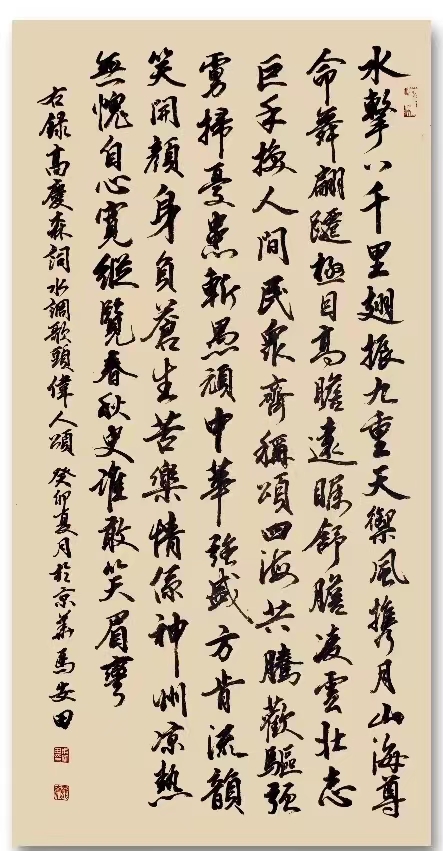 水擊八千里翅振九重天禦風攜月山海尊
命舞翩躚極目高瞻遠矚舒膽凌雲壯志
巨手換人間民眾齊稱頌四海共騰歡驅强
虜掃憂患斬愚頑中華強盛方肯流韻
笑開顏身負蒼生苦樂情係神州凉熱
無愧自心寬縱覽春秋史誰敢笑眉彎
右錄高慶森詞水調歌頭偉人頌 癸卯夏月於京華馬安田